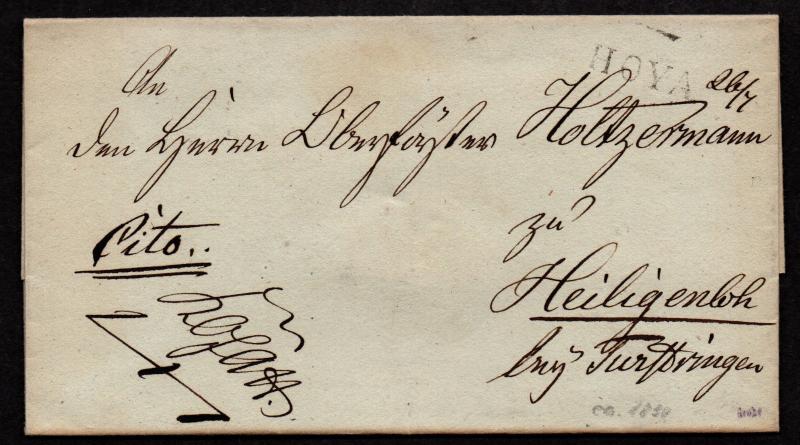 HOYA
26/7
An
den Herrn Oberförster Holtzermann
Cito..
zu
Heiligenloh
bey Twistringen
ca. 1830